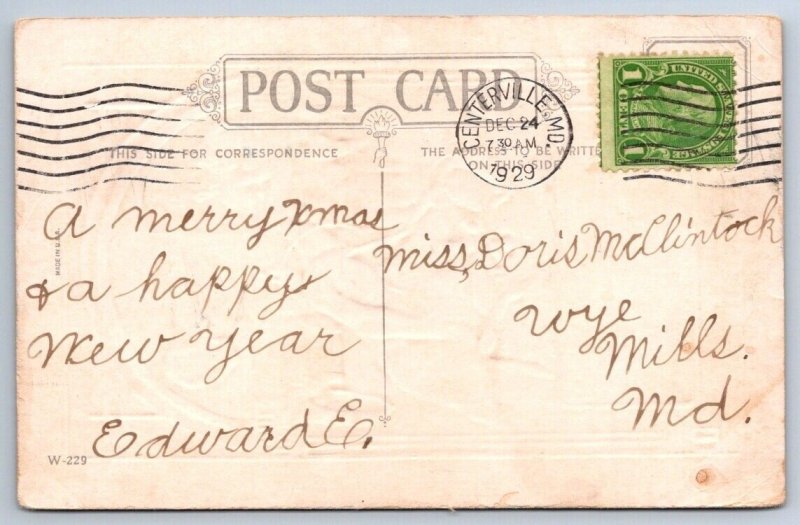 POST CARD
CENTERVILLE, MD.
DEC 24
7 30 AM
1929
UNITED STATES POSTAGE
1
THIS SIDE FOR CORRESPONDENCE
THE ADDRESS TO BE WRITTEN
ON THIS SIDE
A merry Xmas
& a happy
New Year
Edward E.
Miss, Doris McClintock
Wye
Mills.
Md.
MADE IN U.S.A.
W-229